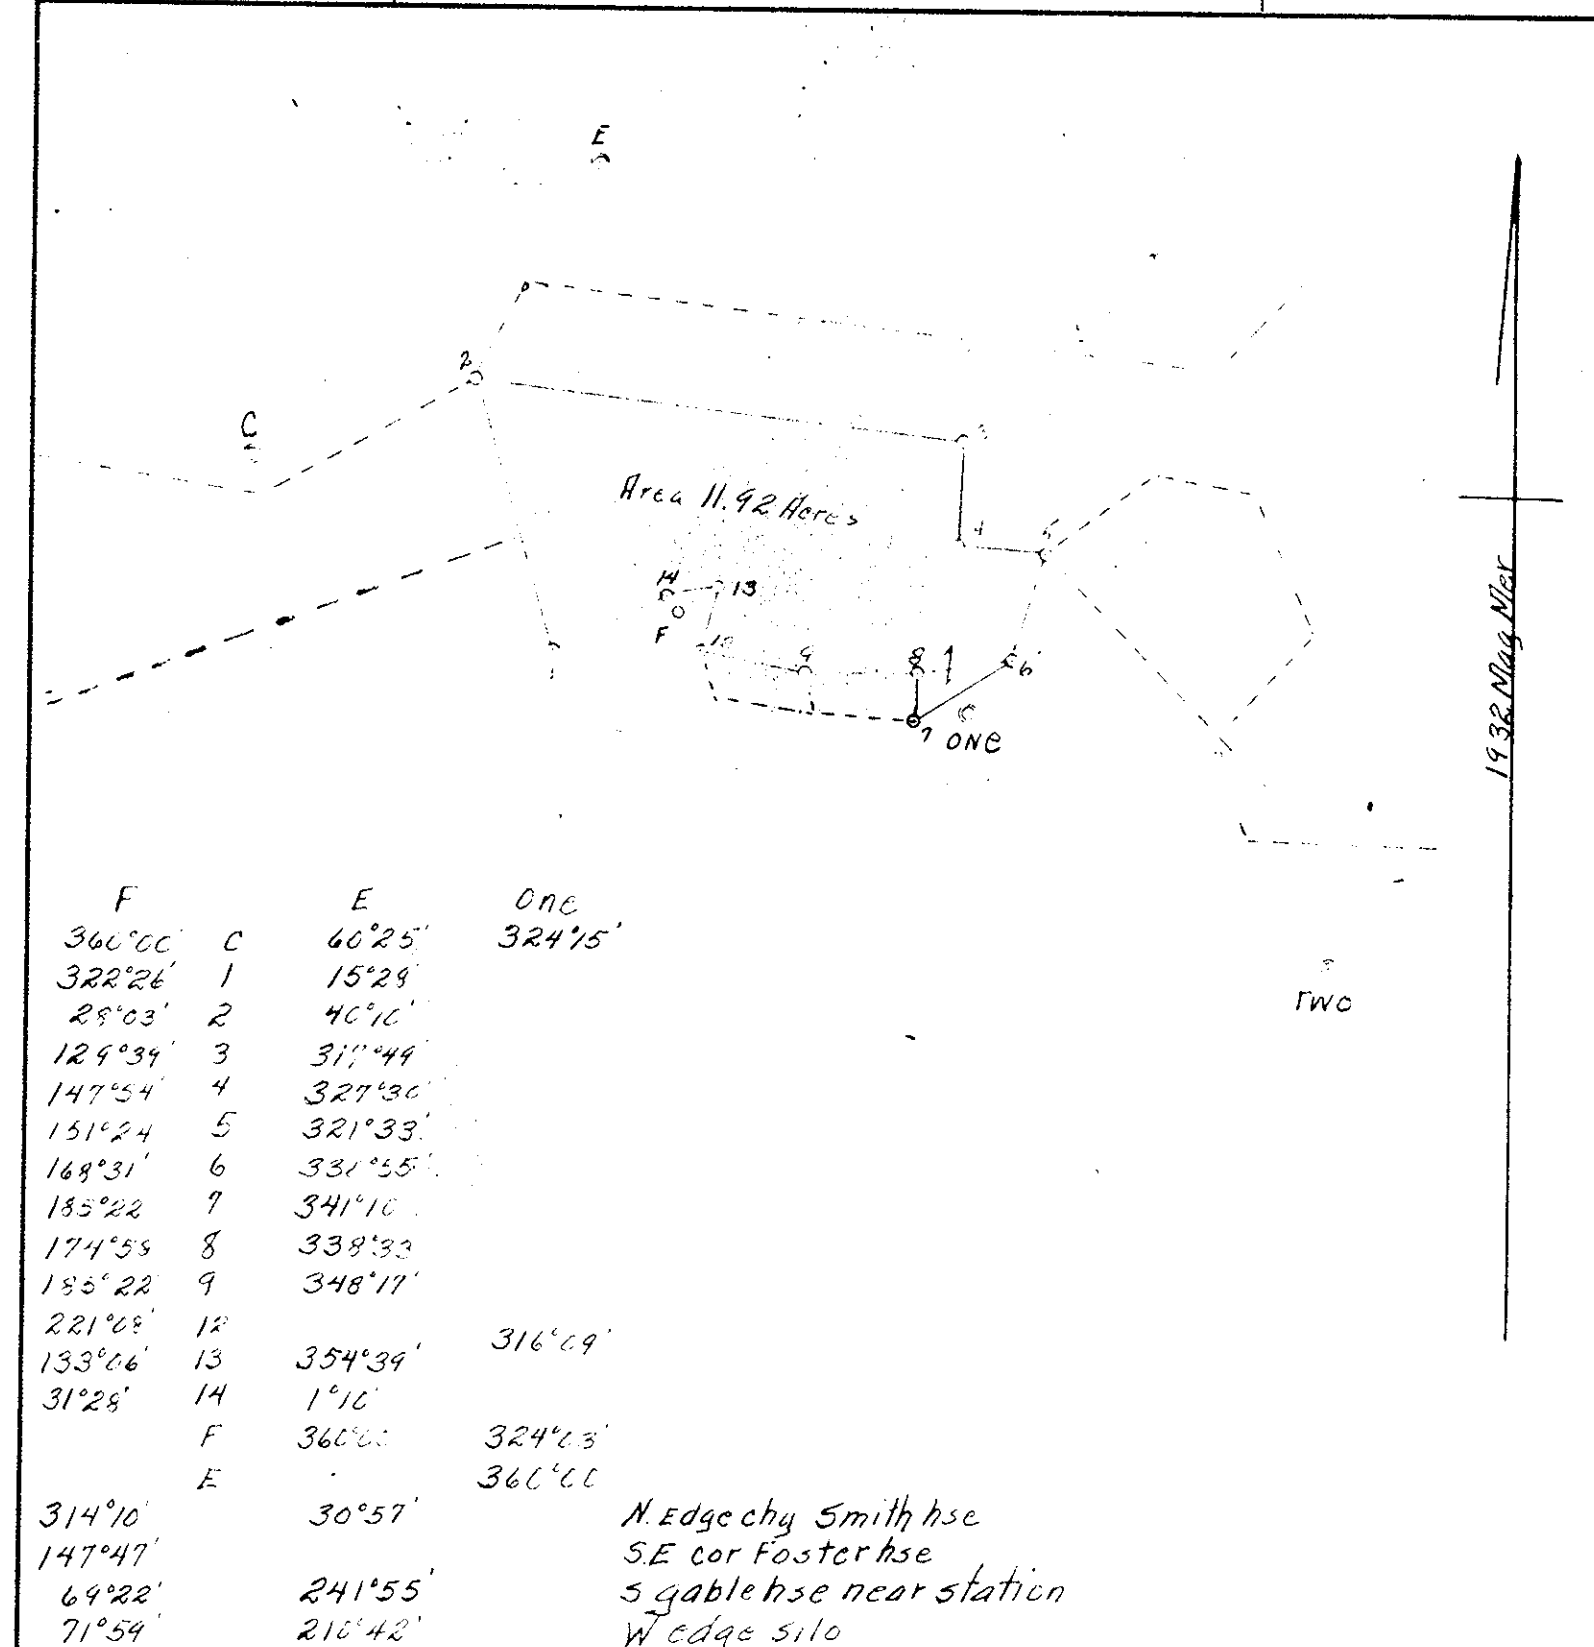 E
2
C
3
Area 11.92 Acres
4
5
14
13
F
12
9
8
6
7
ONE
1932 Mag Mer
TWO
F E One
360°00' C 60°25' 324°15'
322°26' 1 15°28'
28°03' 2 40°10'
129°39' 3
147°54' 4 327°30'
151°24 5 321°33'
168°31' 6
185°22 7 341°10
174°58 8 338°33
185°22 9 348°17'
221°08' 12
316°09'
133°06' 13 354°39'
31°28' 14 1°10'
F 360°00 324°03'
E 360°00
314°10' 30°57' N. Edge chy Smith hse
147°47' S.E cor Foster hse
69°22' 241°55' S gable hse near station
71°59' 210°42' W edge silo